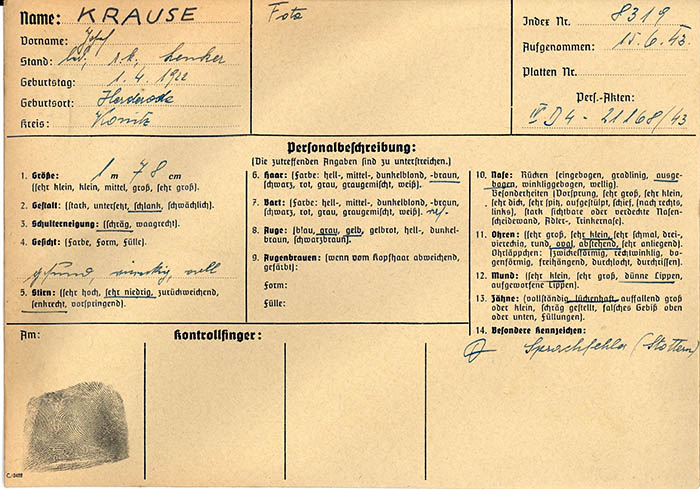 Name: KRAUSE
Vorname: Josef
Stand: led., r.k., Lenker
Geburtstag: 1.4.1922
Geburtsort: Herderode
Kreis: Konitz
Foto
Index Nr. 8319
Aufgenommen: 15.6.43.
Platten Nr.
Pers.-Akten:
IV D 4 - 21168/43
Personalbeschreibung:
(Die zutreffenden Angaben sind zu unterstreichen.)
1. Größe: 1 m 78 cm
(sehr klein, klein, mittel, groß, sehr groß).
2. Gestalt: (stark, untersetzt, schlank, schwächlich).
3. Schulterneigung: (schräg, waagrecht).
4. Gesicht: (Farbe, Form, Fülle).
gesund, voll
5. Stirn: (sehr hoch, sehr niedrig, zurückweichend,
senkrecht, vorspringend).
6. Haar: (Farbe: hell-, mittel-, dunkelblond, -braun,
schwarz, rot, grau, graugemischt, weiß).
7. Bart: (Farbe: hell-, mittel-, dunkelblond, -braun,
schwarz, rot, grau, graugemischt, weiß).
8. Auge: (blau, grau, gelb, gelbrot, hell-, dunkel-
braun, schwarzbraun).
9. Augenbrauen: (wenn vom Kopfhaar abweichend,
gefärbt):
Form:
Fülle:
10. Nase: Rücken (eingebogen, gradlinig, ausge-
bogen, winkliggebogen, wellig).
Besonderheiten (Vorsprung, sehr groß, sehr klein,
sehr dick, sehr spitz, aufgestülpt, schief, (nach rechts,
links), stark sichtbare oder verdeckte Nasen-
scheidewand, Adler-, Trinkernase).
11. Ohren: (sehr groß, sehr klein, sehr schmal, drei-,
viereckig, rund, oval, abstehend, sehr anliegend).
Ohrläppchen: (zwickelförmig, rechtwinklig, bo-
genförmig, freihängend, durchlocht, durchrissen).
12. Mund: (sehr klein, sehr groß, dünne Lippen,
aufgeworfene Lippen).
13. Zähne: (vollständig, lückenhaft, auffallend groß
oder klein, schräg gestellt, falsches Gebiß oben
oder unten, Füllungen).
14. Besondere Kennzeichen:
Sprachfehler (Stottern)
Am:
Kontrollfinger: